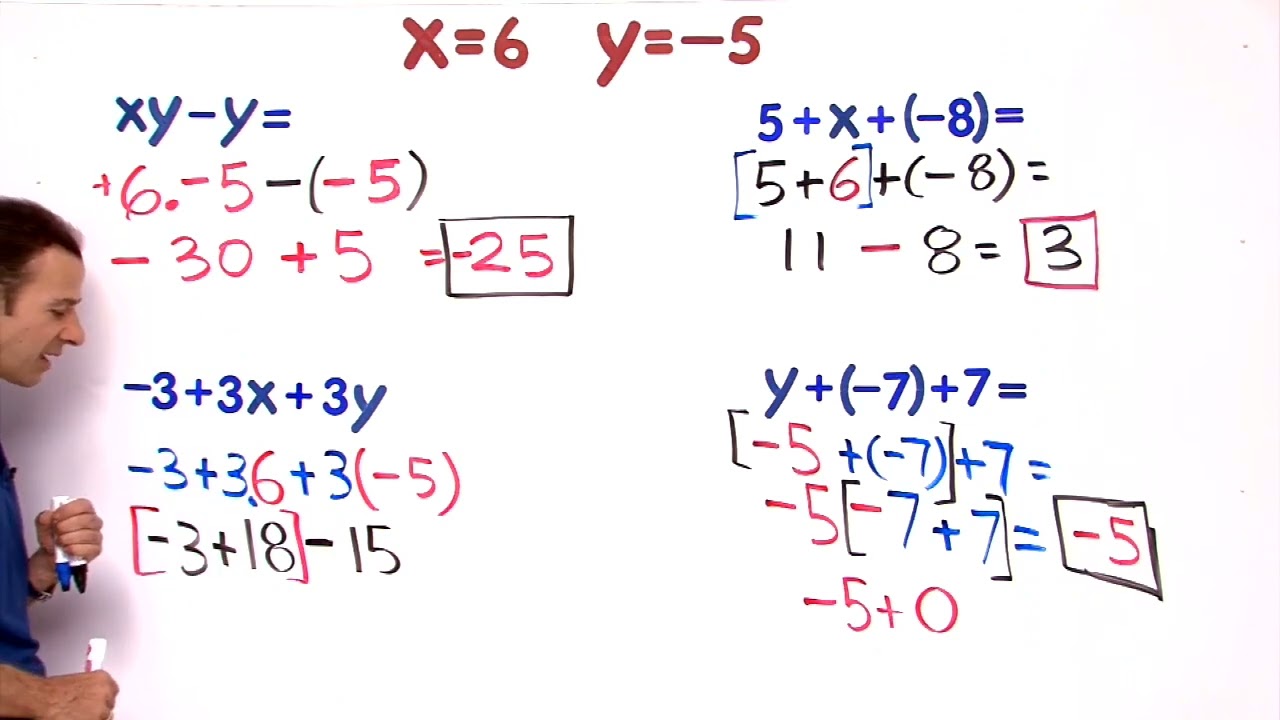 x=6 y=-5
xy-y=
+6.-5-(-5)
-30+5 =-25
5+x+(-8)=
[5+6]+(-8)=
11-8=3
-3+3x+3y
-3+3.6+3(-5)
[-3+18]-15
y+(-7)+7=
[-5+(-7)]+7=
-5[-7+7]=-5
-5+0